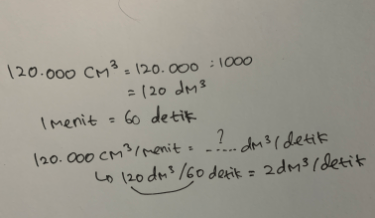 120.000 CM³ = 120.000 : 1000
= 120 dM³
1 menit = 60 detik
120.000 CM³/menit = ..?.. dM³/detik
↳ 120 dM³/60 detik = 2 dM³/detik